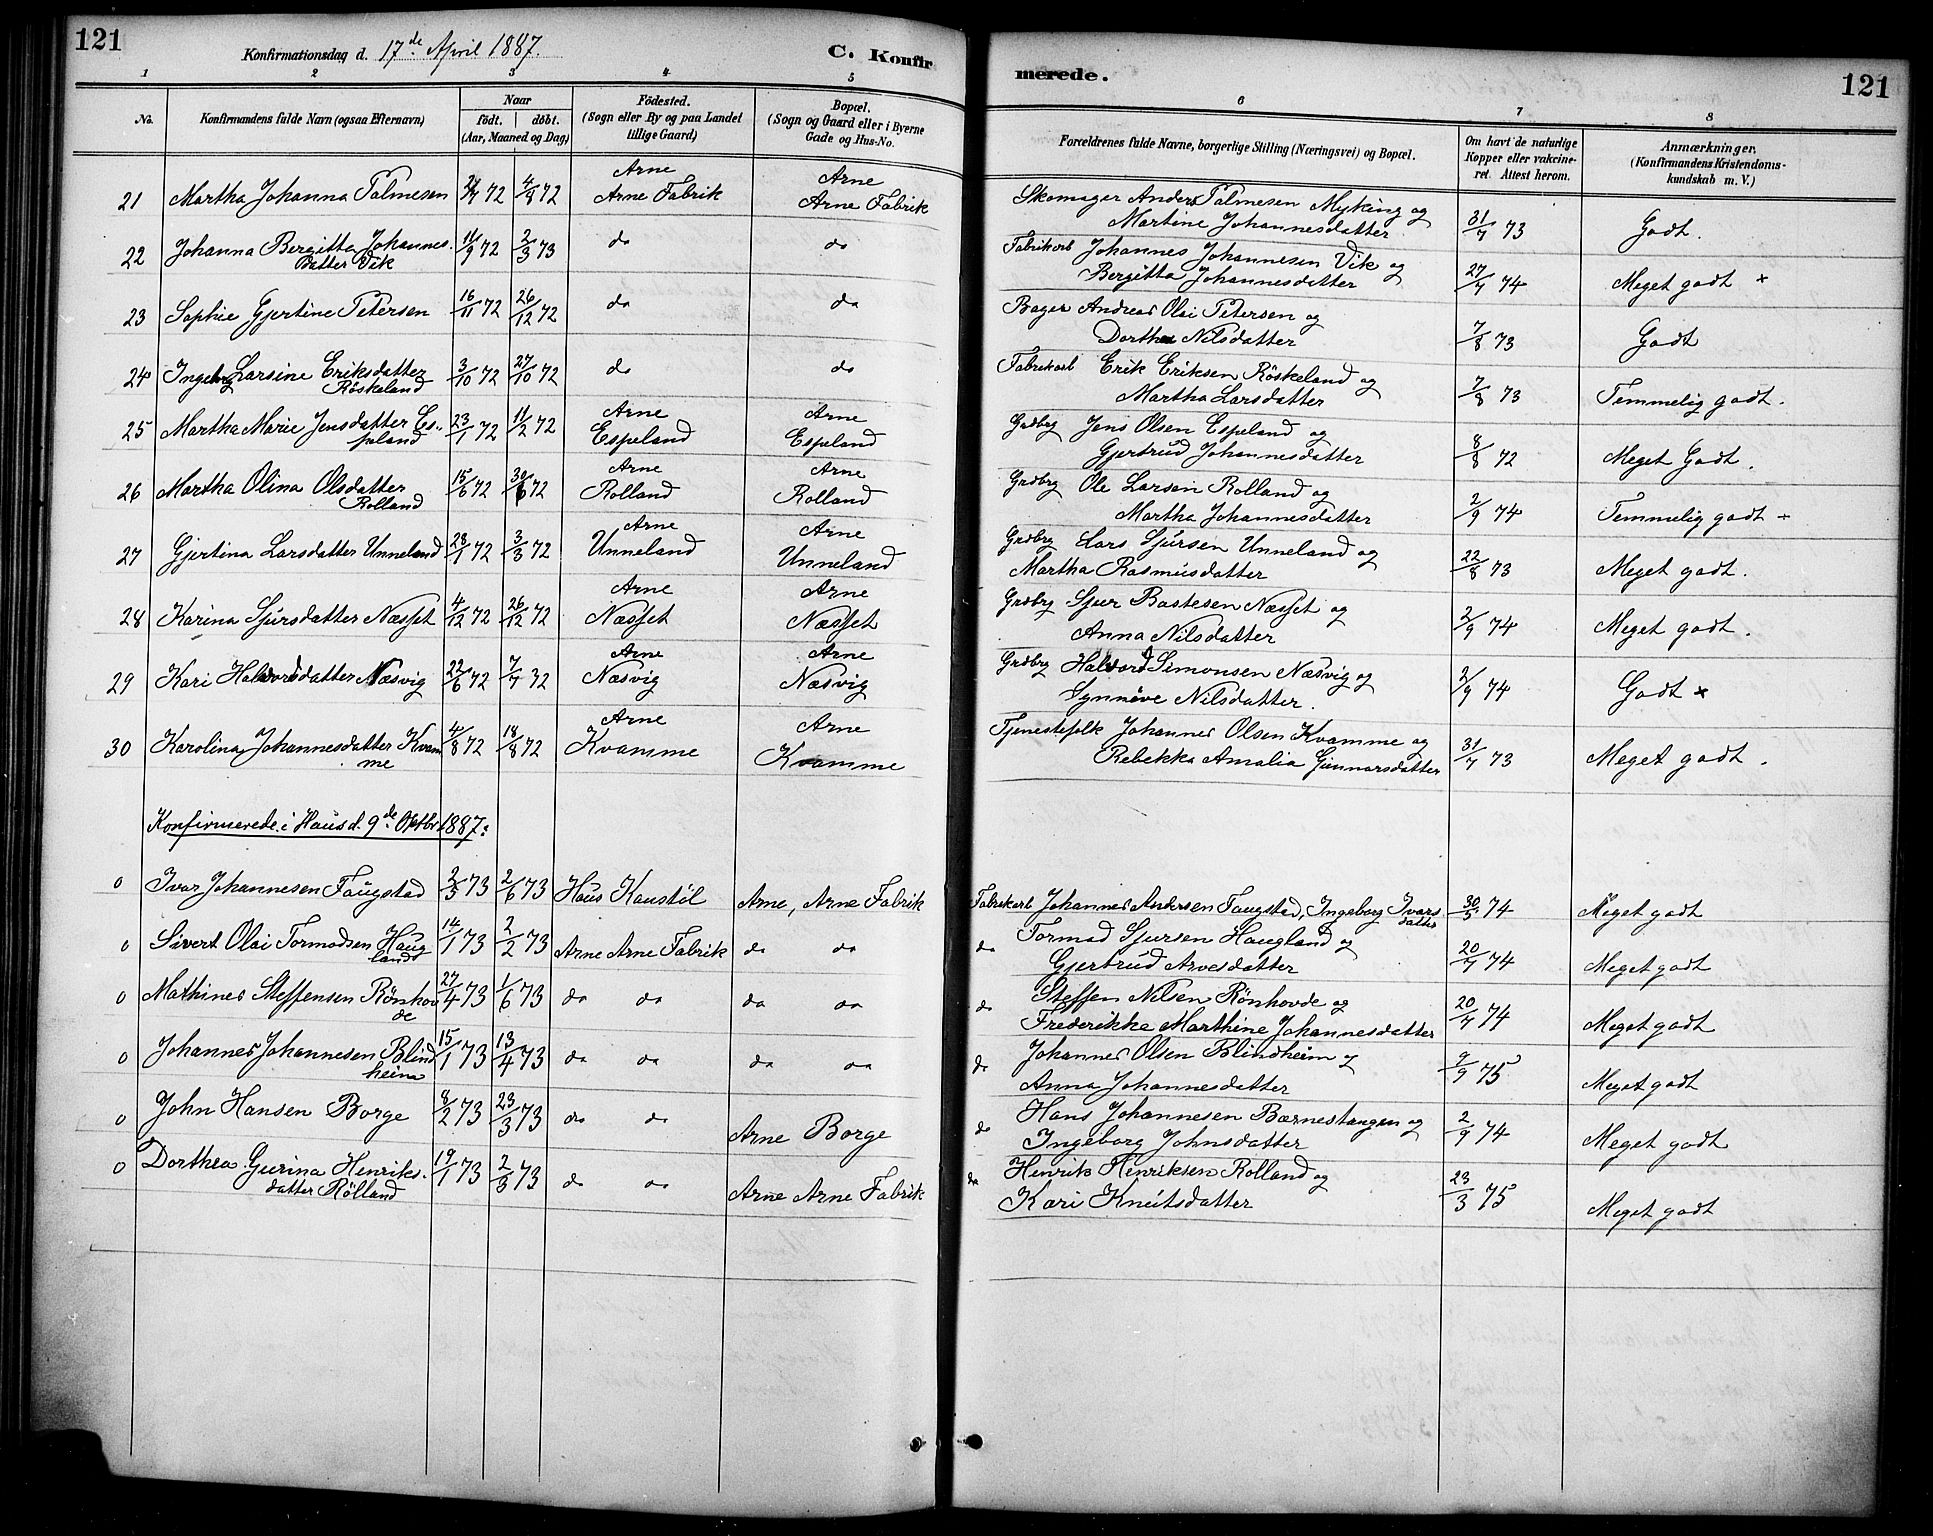 121
Konfirmationsdag d. 17de April 1887.
C. Konfirmerede.
121
1 2 3 4 5 6 7 8
No.
Konfirmandens fulde Navn (ogsaa Efternavn)
Naar
födt. | döbt.
(Aar, Maaned og Dag)
Födested.
(Sogn eller By og paa Landet
tillige Gaard)
Bopæl.
(Sogn og Gaard eller i Byerne
Gade og Hus-No.
Forældrenes fulde Navne, borgerlige Stilling (Næringsvei) og Bopæl.
Om havt de naturlige
Kopper eller vakcine-
ret. Attest herom.
Anmærkninger.
(Konfirmandens Kristendoms-
kundskab m. V.)
21 Martha Johanna Palmesen 72 4/8 72 Arne Arne Fabrik Arne Arne Fabrik Skomager Anders Palmesen Myking og
Martine Johannesdatter 31/7 73 Godt.
22 Johanna Bergitta Johannes- 11/9 72 2/3 73 do do Fabrikarb Johannes Johannesen Vik og
datter Vik Bergitta Johannesdatter 27/7 74 Meget godt x
23 Sophie Gjertine Petersen 16/11 72 26/12 72 do do Bager Andreas Olai Petersen og
Dorthea Nilsdatter 7/8 73 Godt
24 Ingeborg Larsine Eriksdatter 3/10 72 27/10 72 do do Fabrikarb Erik Eriksen Röskeland og
Röskeland Martha Larsdatter 7/8 73 Temmelig godt.
25 Martha Marie Jensdatter Es- 23/1 72 11/2 72 Arne Espeland Arne Espeland Grdbrg Jens Olsen Espeland og
peland Gjertrud Johannesdatter 8/8 72 Meget Godt.
26 Martha Olina Olsdatter 15/6 72 30/6 72 Arne Rolland Arne Rolland Grdbrg Ole Larsen Rolland og
Rolland Martha Johannesdatter 2/9 74 Temmelig godt -
27 Gjertina Larsdatter Unneland 28/1 72 3/3 72 Arne Unneland Arne Unneland Grdbrg Lars Sjursen Unneland og
Martha Rasmusdatter 22/8 73 Meget godt.
28 Karina Sjursdatter Næsset 4/12 72 26/12 72 Arne Næsset Arne Næsset Grdbrg Sjur Bastesen Næsset og
Anna Nilsdatter 2/9 74 Meget godt.
29 Kari Halvordsdatter Næsvig 22/6 72 7/7 72 Arne Næsvig Arne Næsvig Grdbrg Halvord Simonsen Næsvig og
Synnöve Nilsdatter. 2/9 74 Godt x
30 Karolina Johannesdatter Kvam 4/8 72 18/8 72 Arne Kvamme Arne Kvamme Tjenestefolk Johannes Olsen Kvamme og
me Rebekka Amalia Gunnarsdatter 31/7 73 Meget godt.
Konfirmerede i Haus d. 9de Oktbr 1887:
0 Ivar Johannesen Faugstad 2/5 73 2/6 73 Haus Kaustöl Arne, Arne Fabrik Fabrikarb Johannes Andersen Faugstad, Ingeborg Ivars
datter 30/5 74 Meget godt
0 Sivert Olai Tormodsen Haug 14/1 73 2/2 73 Arne Arne Fabrik do do do Tormod Sjursen Haugland og
land Gjertrud Arvesdatter 20/7 74 Meget godt
0 Mathines Steffensen Rönhov 27/4 73 1/6 73 do do do do do Steffen Nilsen Rönhovde og
de Frederikke Marthine Johannesdatter 20/7 74 Meget godt
0 Johannes Johannesen Blind 15/1 73 13/4 73 do do do do do Johannes Olsen Blindheim og
heim Anna Johannesdatter 9/9 75 Meget godt
0 John Hansen Borge 8/2 73 23/3 73 do do Arne Borge do Hans Johannesen Børnestangen og
Ingeborg Johnsdatter 2/9 74 Meget godt
0 Dorthea Gurina Henriks- 19/1 73 2/3 73 do do Arne Arne Fabrik do Henrik Henriksen Rolland og
datter Rolland Kari Knutsdatter 23/3 75 Meget godt